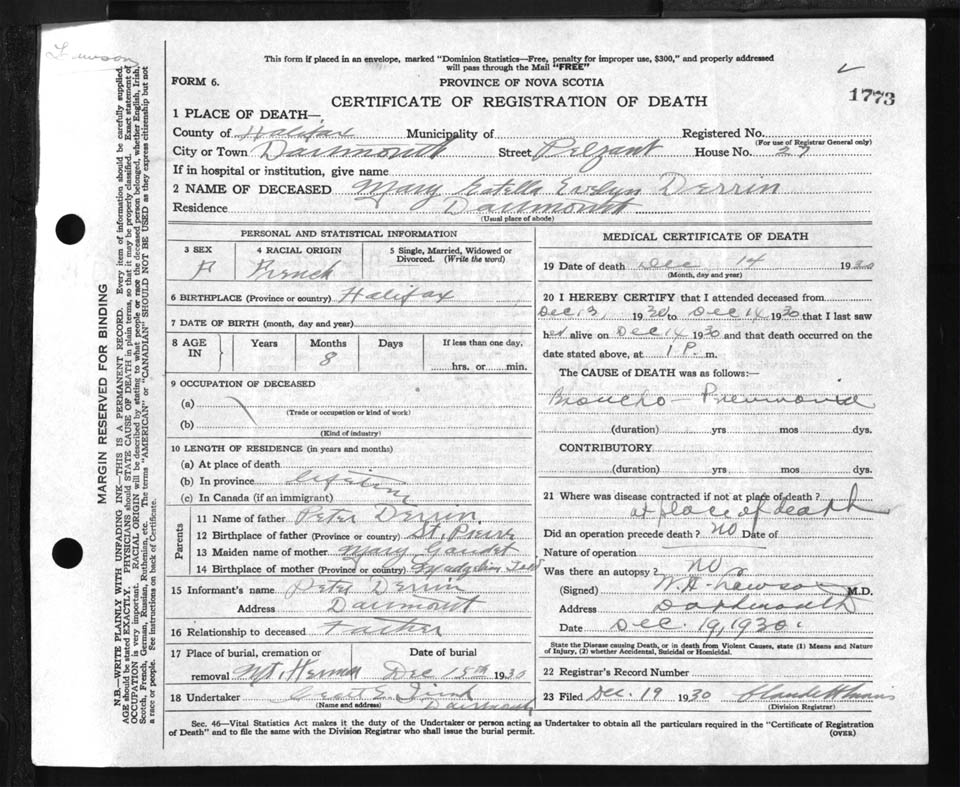 Lawson
This form if placed in an envelope, marked "Dominion Statistics—Free, penalty for improper use, $300," and properly addressed
will pass through the Mail "FREE"
FORM 6.
PROVINCE OF NOVA SCOTIA
1773
CERTIFICATE OF REGISTRATION OF DEATH
1 PLACE OF DEATH—
County of Halifax Municipality of Registered No.
(For use of Registrar General only)
City or Town Dartmouth Street Pelzant House No. 27
If in hospital or institution, give name
2 NAME OF DECEASED Mary Estella Evelyn Derrin
Residence Dartmouth
(Usual place of abode)
PERSONAL AND STATISTICAL INFORMATION
3 SEX F
4 RACIAL ORIGIN French
5 Single, Married, Widowed or
Divorced. (Write the word)
6 BIRTHPLACE (Province or country) Halifax
7 DATE OF BIRTH (month, day and year)
8 AGE IN
Years Months 8 Days
If less than one day,
hrs. or min.
9 OCCUPATION OF DECEASED
(a)
(Trade or occupation or kind of work)
(b)
(Kind of industry)
10 LENGTH OF RESIDENCE (in years and months)
(a) At place of death
(b) In province lifetime
(c) In Canada (if an immigrant)
Parents
11 Name of father Peter Derrin
12 Birthplace of father (Province or country) St. Pierre
13 Maiden name of mother Mary Gaudet
14 Birthplace of mother (Province or country)
15 Informant's name Peter Derrin
Address Dartmouth
16 Relationship to deceased Father
17 Place of burial, cremation or
removal Mt. Hermon
Date of burial
Dec 15th 1930
18 Undertaker
(Name and address) Dartmouth
MEDICAL CERTIFICATE OF DEATH
19 Date of death Dec 14 1930
(Month, day and year)
20 I HEREBY CERTIFY that I attended deceased from
Dec 13, 1930 to Dec 14 1930 that I last saw
her alive on Dec 14 1930 and that death occurred on the
date stated above, at 1 P. m.
The CAUSE of DEATH was as follows:—
Broncho-Pneumonia
(duration) yrs mos dys.
CONTRIBUTORY
(duration) yrs mos dys.
21 Where was disease contracted if not at place of death?
at place of death
Did an operation precede death? NO Date of
Nature of operation
Was there an autopsy? NO
(Signed) W.H. Lawson M.D.
Address Dartmouth
Date Dec. 19, 1930.
State the Disease causing Death, or in death from Violent Causes, state (1) Means and Nature
of Injury, (2) whether Accidental, Suicidal or Homicidal.
22 Registrar's Record Number
23 Filed Dec. 19 1930
(Division Registrar)
Sec. 46—Vital Statistics Act makes it the duty of the Undertaker or person acting as Undertaker to obtain all the particulars required in the "Certificate of Registration
of Death" and to file the same with the Division Registrar who shall issue the burial permit.
(OVER)
MARGIN RESERVED FOR BINDING
N.B.—WRITE PLAINLY WITH UNFADING INK—THIS IS A PERMANENT RECORD. Every item of information should be carefully supplied.
AGE should be stated EXACTLY. PHYSICIANS should STATE CAUSE OF DEATH in plain terms, so that it may be properly classified. Exact statement of
OCCUPATION is very important. RACIAL ORIGIN will be described by stating to what people or race the deceased person belonged, whether English, Irish,
Scotch, French, German, Russian, Ruthenian, etc. The terms "AMERICAN" or "CANADIAN" SHOULD NOT BE USED as they express citizenship but not
a race or people. See instructions on back of Certificate.